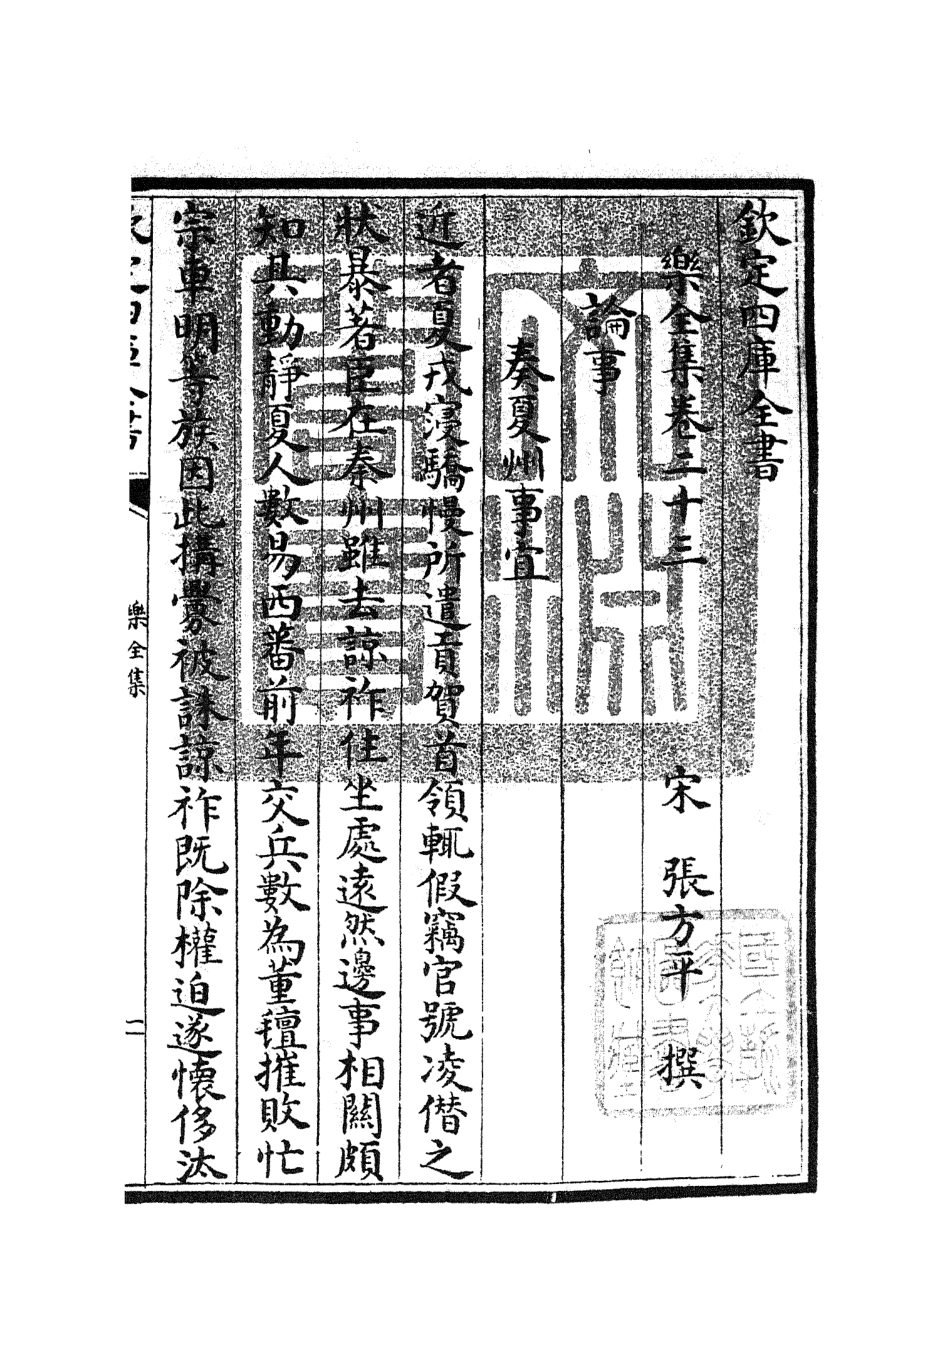 欽定四庫全書
樂全集卷二十三 宋 張方平 撰
論事
奏夏州事宜
近者夏戎寖驕慢所遣貢賀首領輒假竊官號凌僭之
狀暴著臣在秦州雖去諒祚住坐處遠然邊事相關頗
知其動靜夏人數易西蕃前年交兵數為董氊摧敗忙
宗車明等族因此搆釁被誅諒祚既除權迫遂懷侈汰
欽定四庫全書
樂全集
一